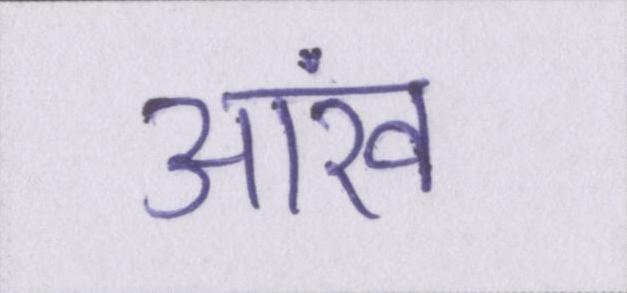 आंख